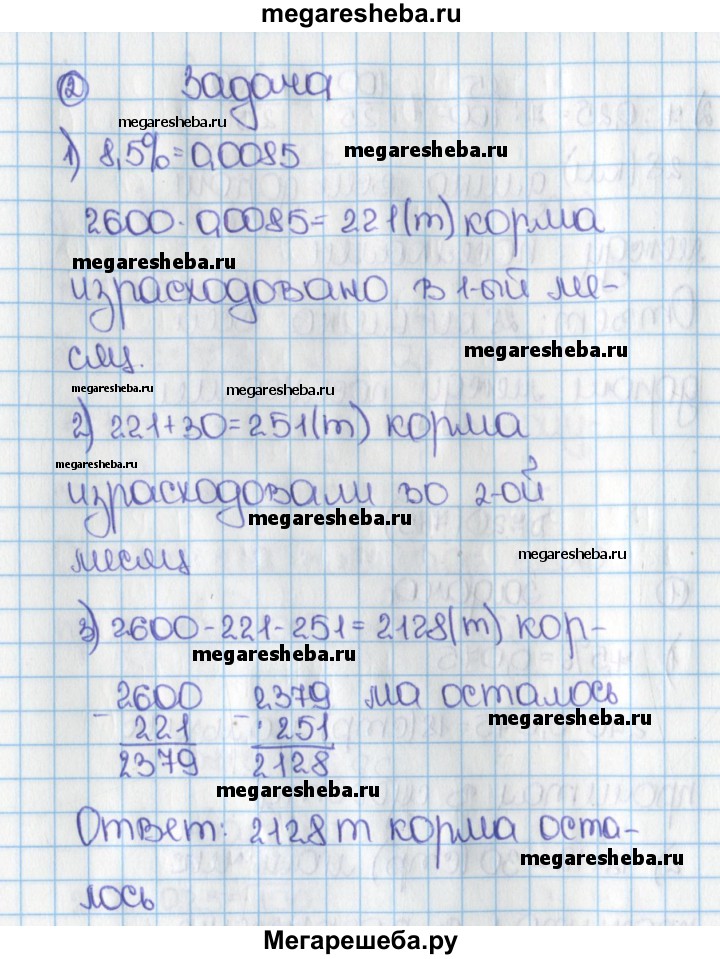 megaresheba.ru
② Задача
megaresheba.ru
1) 8,5% = 0,0085
megaresheba.ru
2600 · 0,0085 = 221(т) корма
megaresheba.ru
израсходовано в 1-ый ме-
megaresheba.ru
сяц.
megaresheba.ru megaresheba.ru
2) 221+30=251(т) корма
megaresheba.ru
израсходовали во 2-ой
megaresheba.ru
месяц
megaresheba.ru
3) 2600-221-251=2128(т) кор-
megaresheba.ru
2600 2379 ма осталось
megaresheba.ru
- 221 - 251
2379 2128
megaresheba.ru
Ответ: 2128 т корма оста-
megaresheba.ru
лось
Мегарешеба.ру